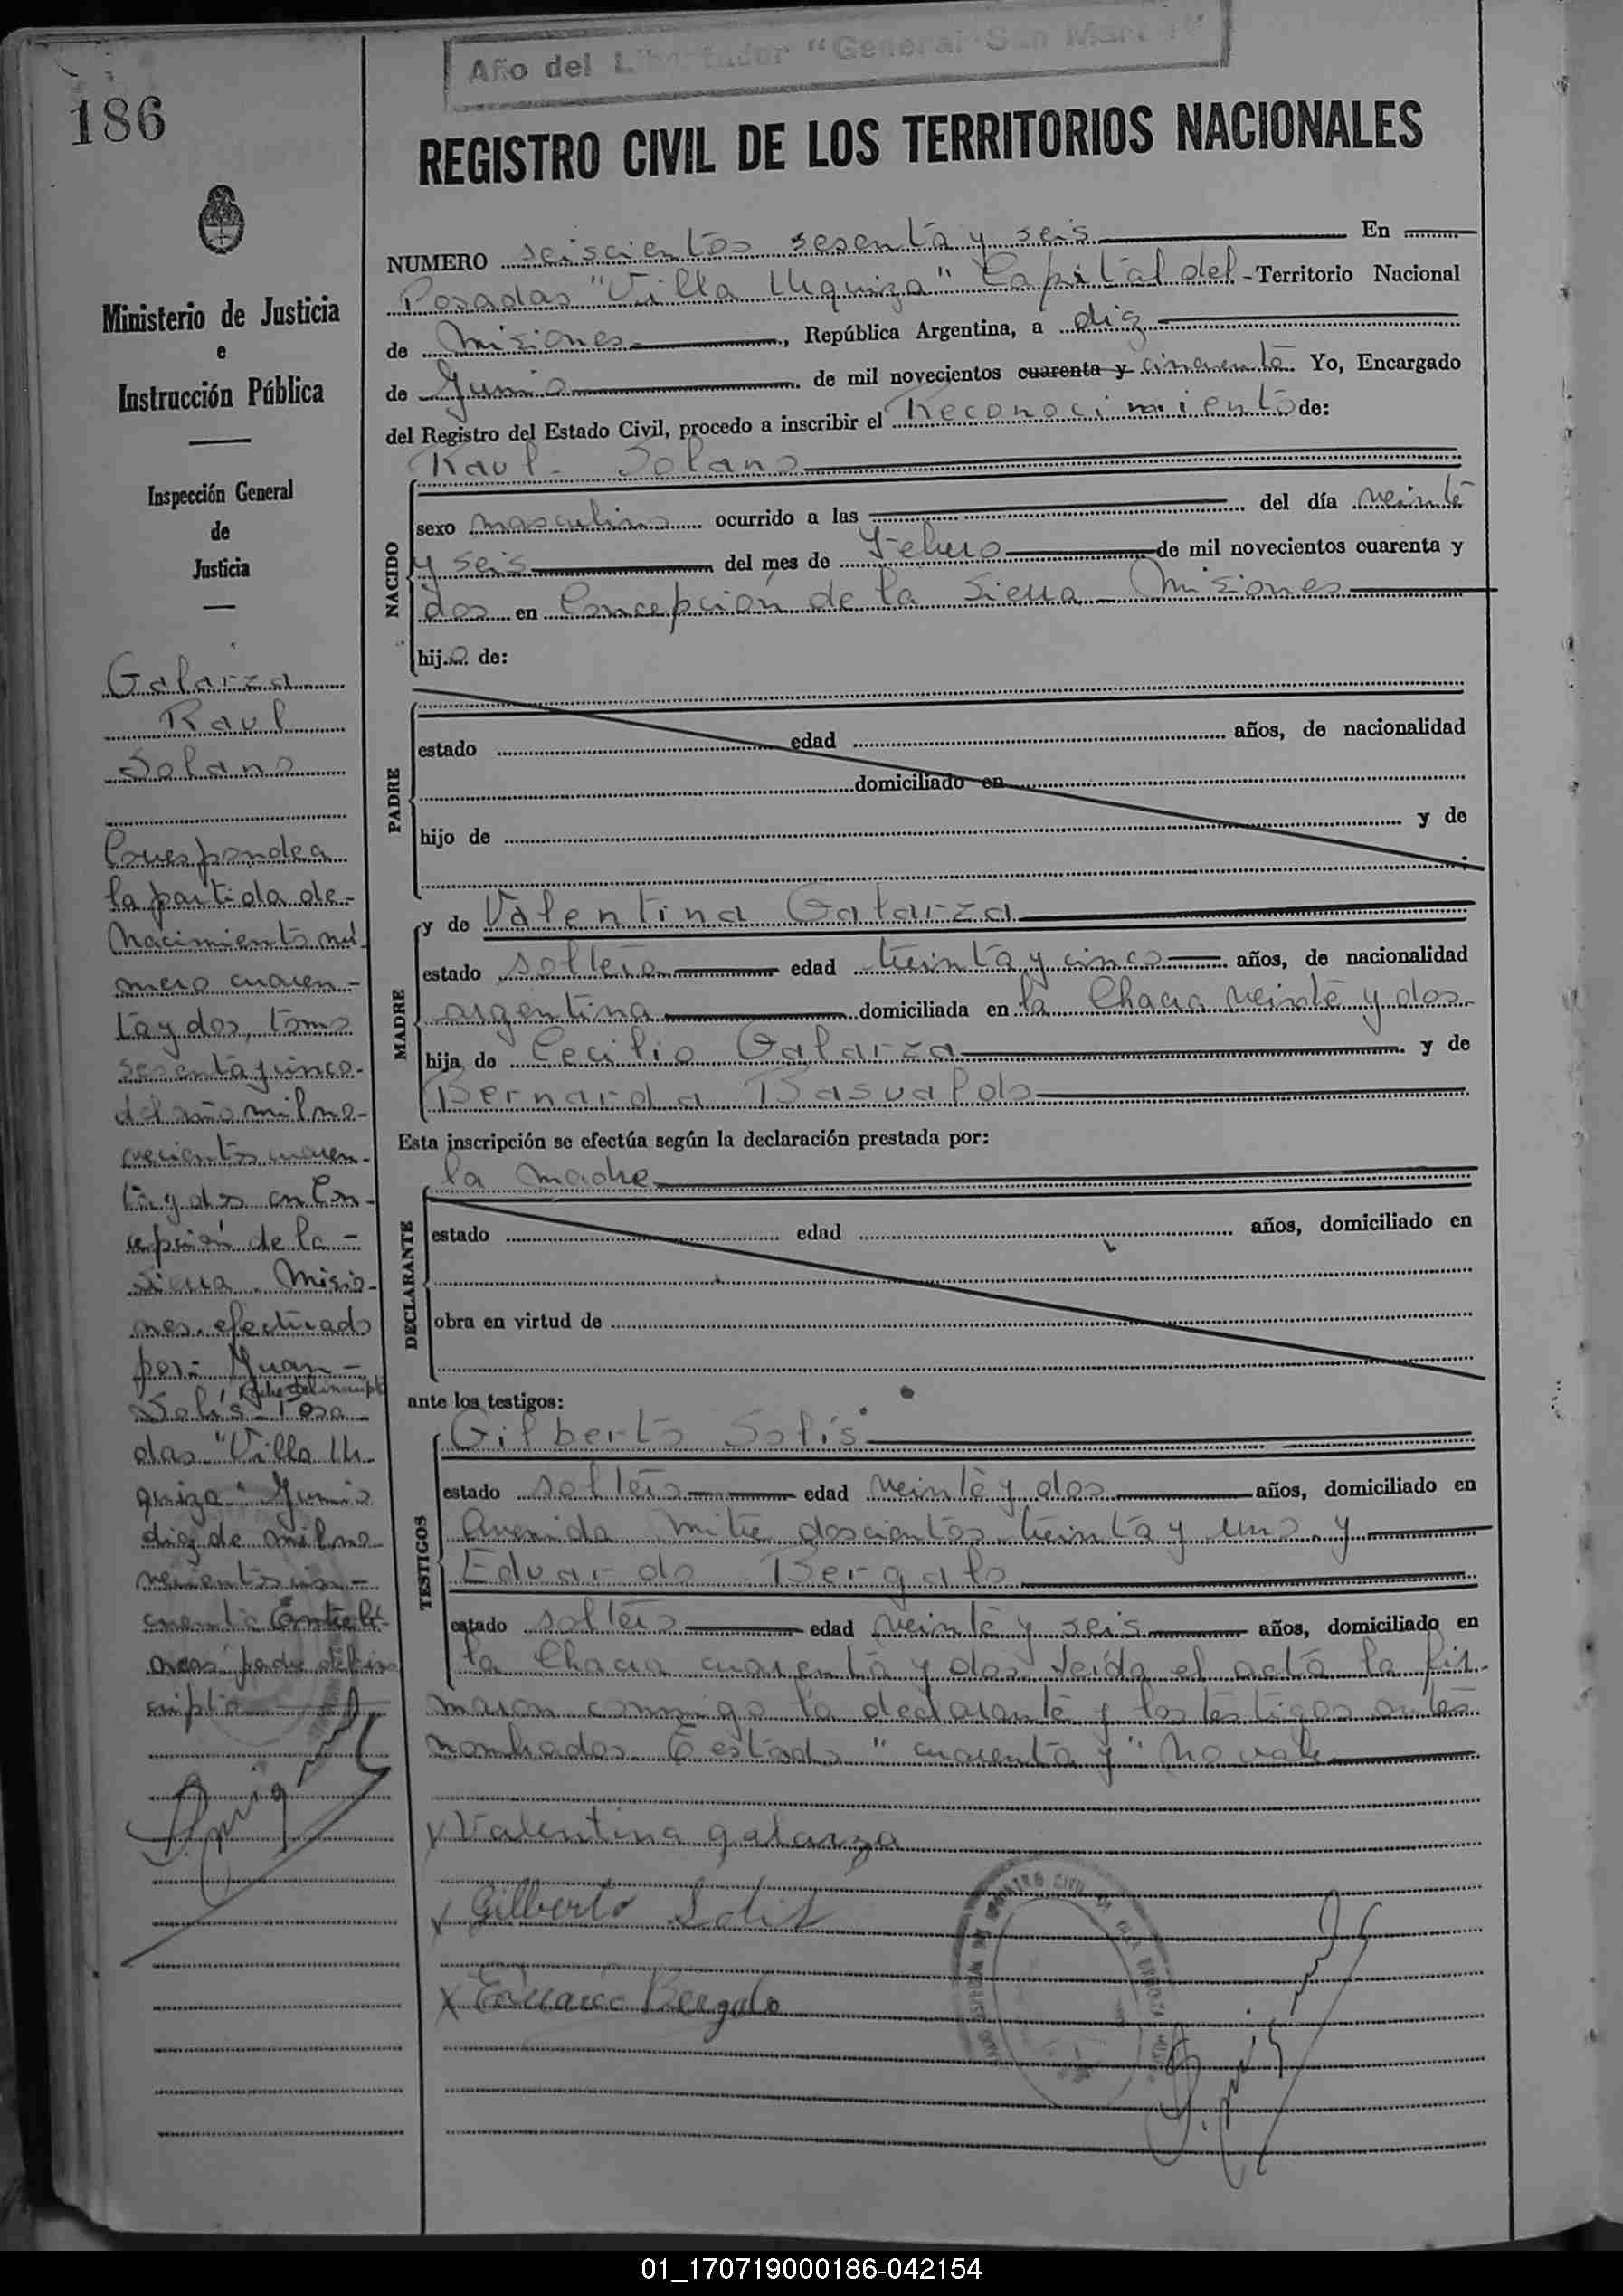 Año del Libertador "General San Martín"
186
REGISTRO CIVIL DE LOS TERRITORIOS NACIONALES
Ministerio de Justicia
e
Instrucción Pública
Inspección General
de
Justicia
Galarza
Raul
Solano
Corresponde a
la partida de-
Nacimiento nú-
mero cuaren-
ta y dos, tomo
sesenta y cinco-
del año mil no-
vecientos cuaren-
ta y dos en Con-
cepción de la-
Sierra. Misio-
nes. efectuado
por: Juan-
padre del inscripto
Solís-Posa-
das "Villa Ur-
quiza" Junio
diez de mil no-
vecientos cin-
cuenta Entre lí-
neas: padre del ins-
cripto
NUMERO seiscientos sesenta y seis En
Posadas "Villa Urquiza" Capital del - Territorio Nacional
de Misiones, República Argentina, a diez
de Junio de mil novecientos cuarenta y cincuenta. Yo, Encargado
del Registro del Estado Civil, procedo a inscribir el Reconocimiento de:
Raul Solano
NACIDO
sexo masculino ocurrido a las del día veinte
y seis del mes de Febrero de mil novecientos cuarenta y
dos en Concepción de la Sierra - Misiones
hijo de:
PADRE
estado edad años, de nacionalidad
domiciliado en
hijo de y de
MADRE
y de Valentina Galarza
estado soltera edad treinta y cinco años, de nacionalidad
argentina domiciliada en la Chacra veinte y dos
hija de Cecilio Galarza y de
Bernarda Basualdo
Esta inscripción se efectúa según la declaración prestada por:
la madre
DECLARANTE
estado edad años, domiciliado en
obra en virtud de
ante los testigos:
TESTIGOS
Gilberto Solís
estado soltero edad veinte y dos años, domiciliado en
Avenida Mitre doscientos treinta y uno. y
Eduardo Bergalo
estado soltero edad veinte y seis años, domiciliado en
la Chacra cuarenta y dos leída el acta la fir-
maron conmigo la declarante y los testigos antes
nombrados. Testado "cuarenta y" No vale
x Valentina galarza
x Gilberto Solis
x Eduardo Bergalo
01_170719000186-042154